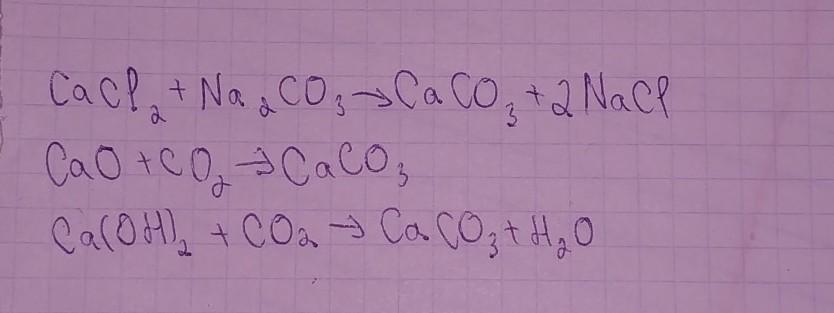 CaCl₂ + Na₂CO₃ → CaCO₃ + 2NaCl
CaO + CO₂ → CaCO₃
Ca(OH)₂ + CO₂ → CaCO₃ + H₂O